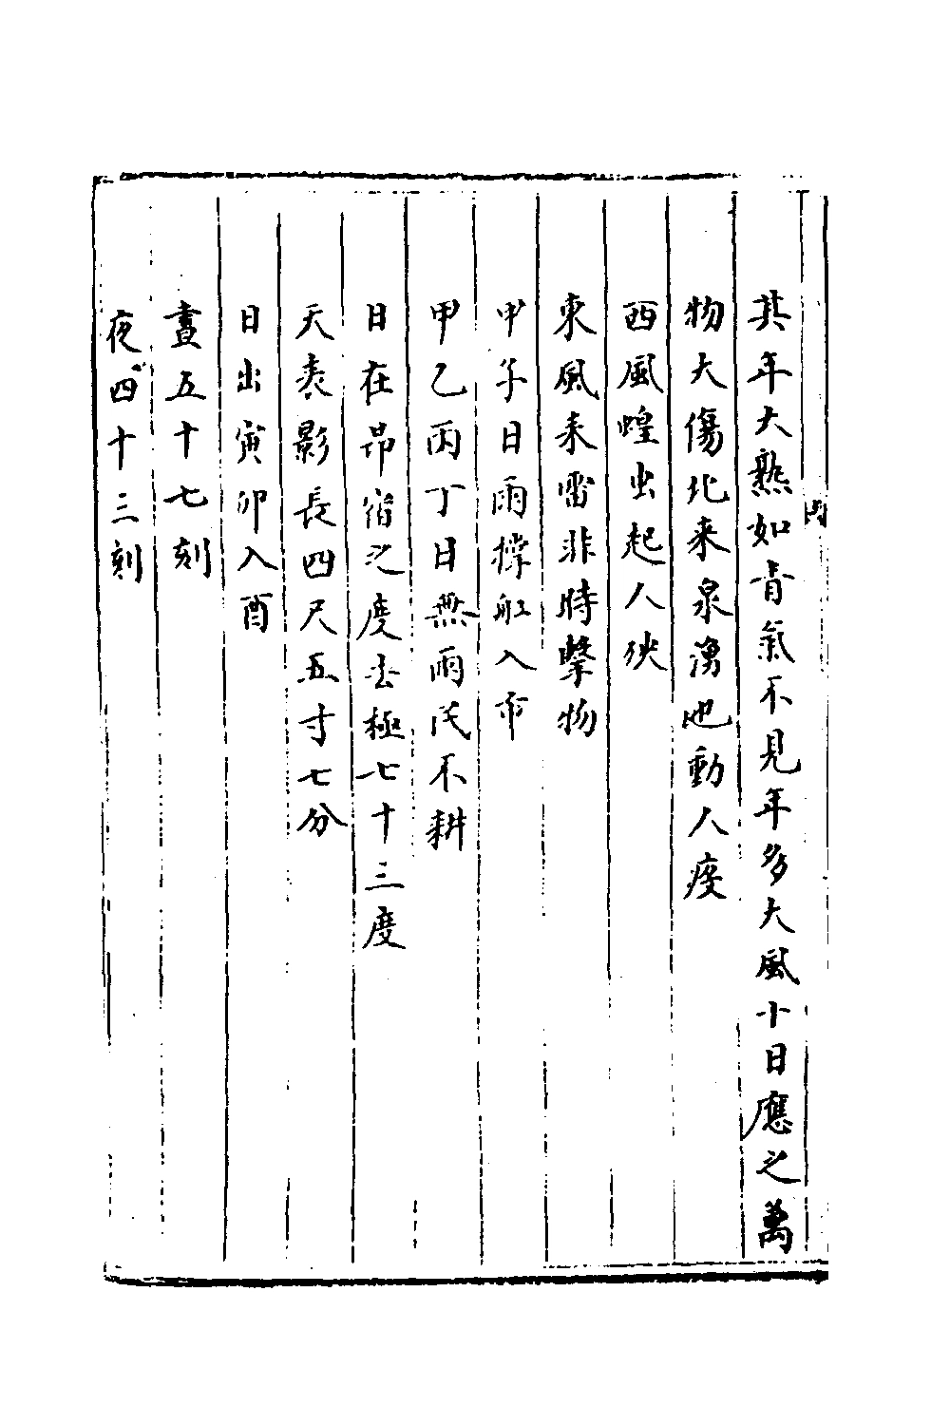 其年大熟如青氣不見年多大風十日應之萬
物大傷北來泉湧地動人疫
西風蝗虫起人殃
東風来雷非時擊物
甲子日雨撑舡入市
甲乙丙丁日無雨民不耕
日在昴宿之度去極七十三度
天表影長四尺五寸七分
日出寅卯入酉
晝五十七刻
夜四十三刻